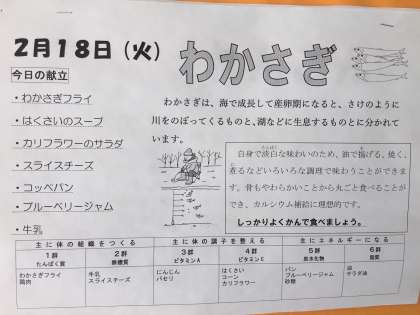 2月18日（火）
わかさぎ
今日の献立
・わかさぎフライ
・はくさいのスープ
・カリフラワーのサラダ
・スライスチーズ
・コッペパン
・ブルーベリージャム
・牛乳
わかさぎは、海で成長して産卵期になると、さけのように
川をのぼってくるものと、湖などに生息するものとに分かれて
います。
白身で淡白な味わいのため、油で揚げる、焼く、
煮るなどいろいろな調理で味わうことができま
す。骨もやわらかいことから丸ごと食べることが
でき、カルシウム補給に理想的です。
しっかりよくかんで食べましょう。
主に体の組織をつくる
主に体の調子を整える
主にエネルギーになる
1群
たんぱく質
2群
無機質
3群
ビタミンA
4群
ビタミンC
5群
炭水化物
6群
脂質
わかさぎフライ
鶏肉
牛乳
スライスチーズ
にんじん
パセリ
はくさい
コーン
カリフラワー
パン
ブルーベリージャム
砂糖
油
サラダ油